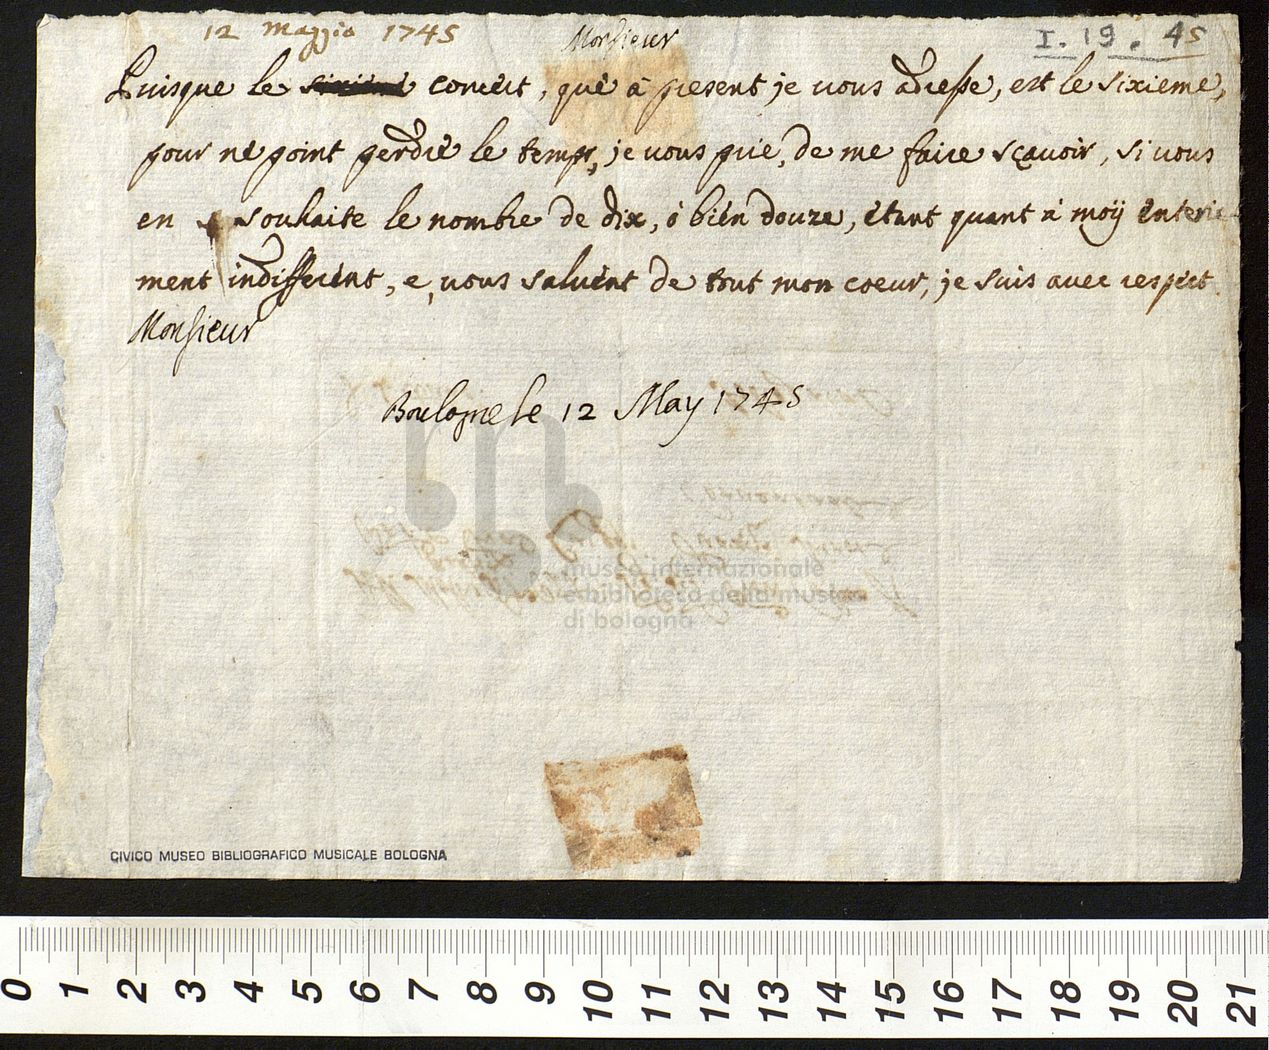 12 Maggio 1745
Monsieur
I. 19. 45
Puisque le concert, que à present je vous adresse, est le sixieme,
pour ne point perdre le temps, je vous prie, de me faire sçavoir, si vous
en souhaite le nombre de dix, ó bien douze, étant quant à moÿ enterie-
ment indifferent, e vous saluent de tout mon coeur, je suis avec respect.
Monsieur
Boulogne le 12 May 1745
museo internazionale
e biblioteca della musica
di bologna
CIVICO MUSEO BIBLIOGRAFICO MUSICALE BOLOGNA
0 1 2 3 4 5 6 7 8 9 10 11 12 13 14 15 16 17 18 19 20 21